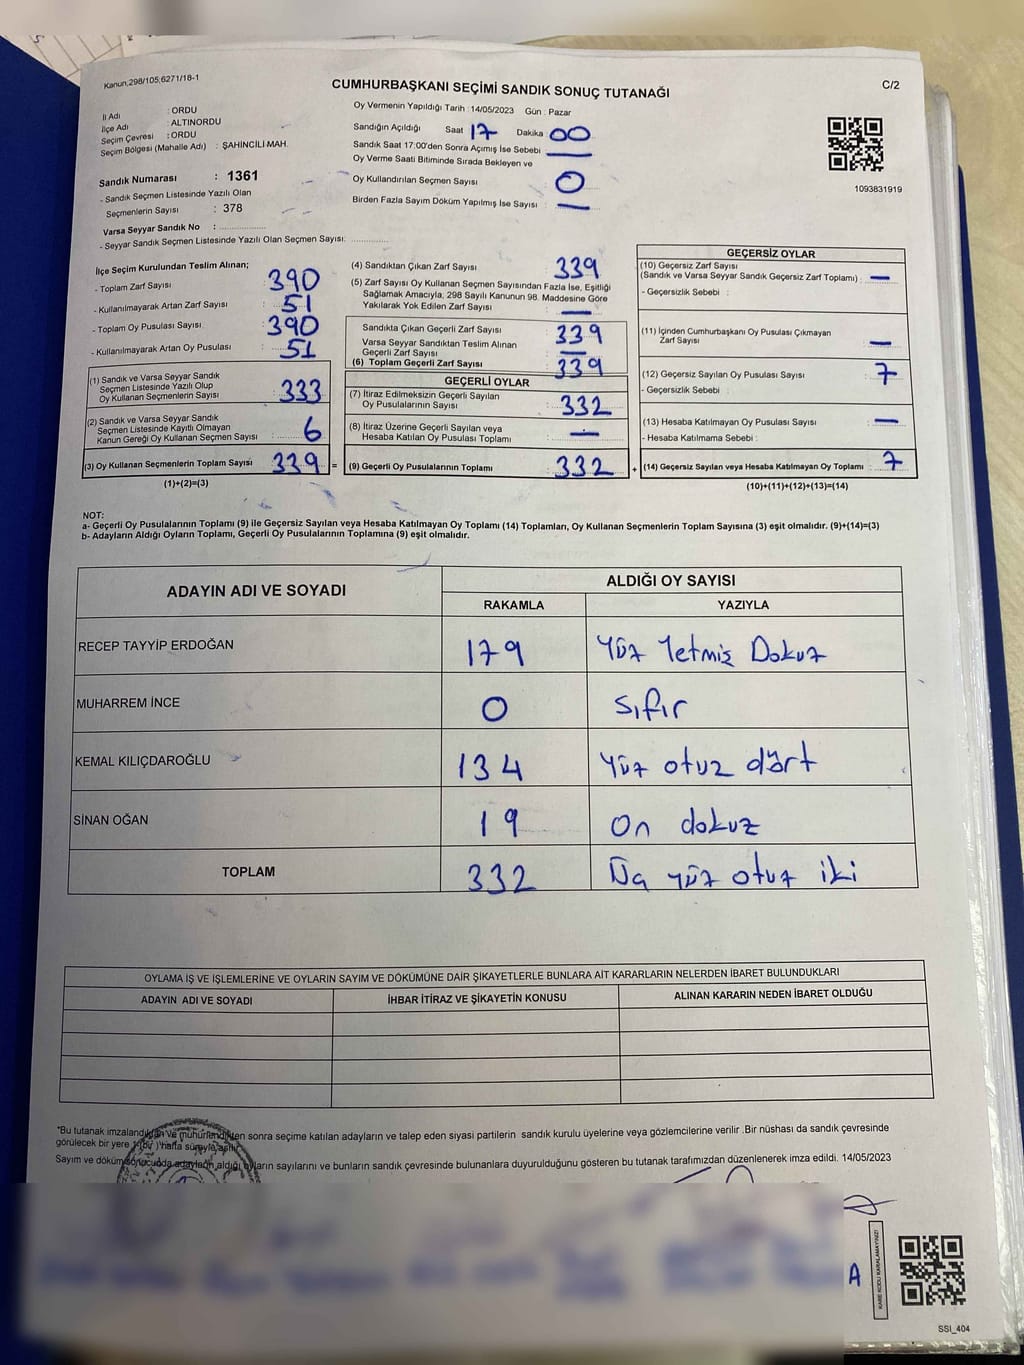 Kanun;298/105;6271/18-1
CUMHURBAŞKANI SEÇİMİ SANDIK SONUÇ TUTANAĞI
C/2
İl Adı : ORDU
İlçe Adı : ALTINORDU
Seçim Çevresi : ORDU
Seçim Bölgesi (Mahalle Adı) : ŞAHİNCİLİ MAH.
Oy Vermenin Yapıldığı Tarih : 14/05/2023 Gün : Pazar
Sandığın Açıldığı Saat 17 Dakika 00
Sandık Saat 17:00'den Sonra Açımış İse Sebebi —
Oy Verme Saati Bitiminde Sırada Bekleyen ve
Oy Kullandırılan Seçmen Sayısı 0
Birden Fazla Sayım Döküm Yapılmış İse Sayısı : —
1093831919
Sandık Numarası : 1361
- Sandık Seçmen Listesinde Yazılı Olan
Seçmenlerin Sayısı : 378
Varsa Seyyar Sandık No :
- Seyyar Sandık Seçmen Listesinde Yazılı Olan Seçmen Sayısı:
İlçe Seçim Kurulundan Teslim Alınan;
- Toplam Zarf Sayısı : 390
- Kullanılmayarak Artan Zarf Sayısı : 51
- Toplam Oy Pusulası Sayısı : 390
- Kullanılmayarak Artan Oy Pusulası : 51
(1) Sandık ve Varsa Seyyar Sandık
Seçmen Listesinde Yazılı Olup
Oy Kullanan Seçmenlerin Sayısı : 333
(2) Sandık ve Varsa Seyyar Sandık
Seçmen Listesinde Kayıtlı Olmayan
Kanun Gereği Oy Kullanan Seçmen Sayısı : 6
(3) Oy Kullanan Seçmenlerin Toplam Sayısı : 339 =
(1)+(2)=(3)
(4) Sandıktan Çıkan Zarf Sayısı : 339
(5) Zarf Sayısı Oy Kullanan Seçmen Sayısından Fazla İse, Eşitliği
Sağlamak Amacıyla, 298 Sayılı Kanunun 98. Maddesine Göre
Yakılarak Yok Edilen Zarf Sayısı : —
Sandıkta Çıkan Geçerli Zarf Sayısı : 339
Varsa Seyyar Sandıktan Teslim Alınan
Geçerli Zarf Sayısı : —
(6) Toplam Geçerli Zarf Sayısı : 339
GEÇERLİ OYLAR
(7) İtiraz Edilmeksizin Geçerli Sayılan
Oy Pusulalarının Sayısı : 332
(8) İtiraz Üzerine Geçerli Sayılan veya
Hesaba Katılan Oy Pusulası Toplamı : —
(9) Geçerli Oy Pusulalarının Toplamı : 332 +
GEÇERSİZ OYLAR
(10) Geçersiz Zarf Sayısı
(Sandık ve Varsa Seyyar Sandık Geçersiz Zarf Toplamı) : —
- Geçersizlik Sebebi :
(11) İçinden Cumhurbaşkanı Oy Pusulası Çıkmayan
Zarf Sayısı : —
(12) Geçersiz Sayılan Oy Pusulası Sayısı : 7
- Geçersizlik Sebebi :
(13) Hesaba Katılmayan Oy Pusulası Sayısı : —
- Hesaba Katılmama Sebebi :
(14) Geçersiz Sayılan veya Hesaba Katılmayan Oy Toplamı : 7
(10)+(11)+(12)+(13)=(14)
NOT:
a- Geçerli Oy Pusulalarının Toplamı (9) ile Geçersiz Sayılan veya Hesaba Katılmayan Oy Toplamı (14) Toplamları, Oy Kullanan Seçmenlerin Toplam Sayısına (3) eşit olmalıdır. (9)+(14)=(3)
b- Adayların Aldığı Oyların Toplamı, Geçerli Oy Pusulalarının Toplamına (9) eşit olmalıdır.
ADAYIN ADI VE SOYADI ALDIĞI OY SAYISI
RAKAMLA YAZIYLA
RECEP TAYYİP ERDOĞAN 179 Yüz Yetmiş Dokuz
MUHARREM İNCE 0 Sıfır
KEMAL KILIÇDAROĞLU 134 Yüz otuz dört
SİNAN OĞAN 19 On dokuz
TOPLAM 332 Üç yüz otuz iki
OYLAMA İŞ VE İŞLEMLERİNE VE OYLARIN SAYIM VE DÖKÜMÜNE DAİR ŞİKAYETLERLE BUNLARA AİT KARARLARIN NELERDEN İBARET BULUNDUKLARI
ADAYIN ADI VE SOYADI İHBAR İTİRAZ VE ŞİKAYETİN KONUSU ALINAN KARARIN NEDEN İBARET OLDUĞU
*Bu tutanak imzalandıktan ve mühürlendikten sonra seçime katılan adayların ve talep eden siyasi partilerin sandık kurulu üyelerine veya gözlemcilerine verilir .Bir nüshası da sandık çevresinde
görülecek bir yere 1 (Bir ) hafta süreyle asılır.
Sayım ve döküm sonucunda adayların aldığı oyların sayılarını ve bunların sandık çevresinde bulunanlara duyurulduğunu gösteren bu tutanak tarafımızdan düzenlenerek imza edildi. 14/05/2023
A
KARE KODU KARALAMAYINIZ!
SSI_404